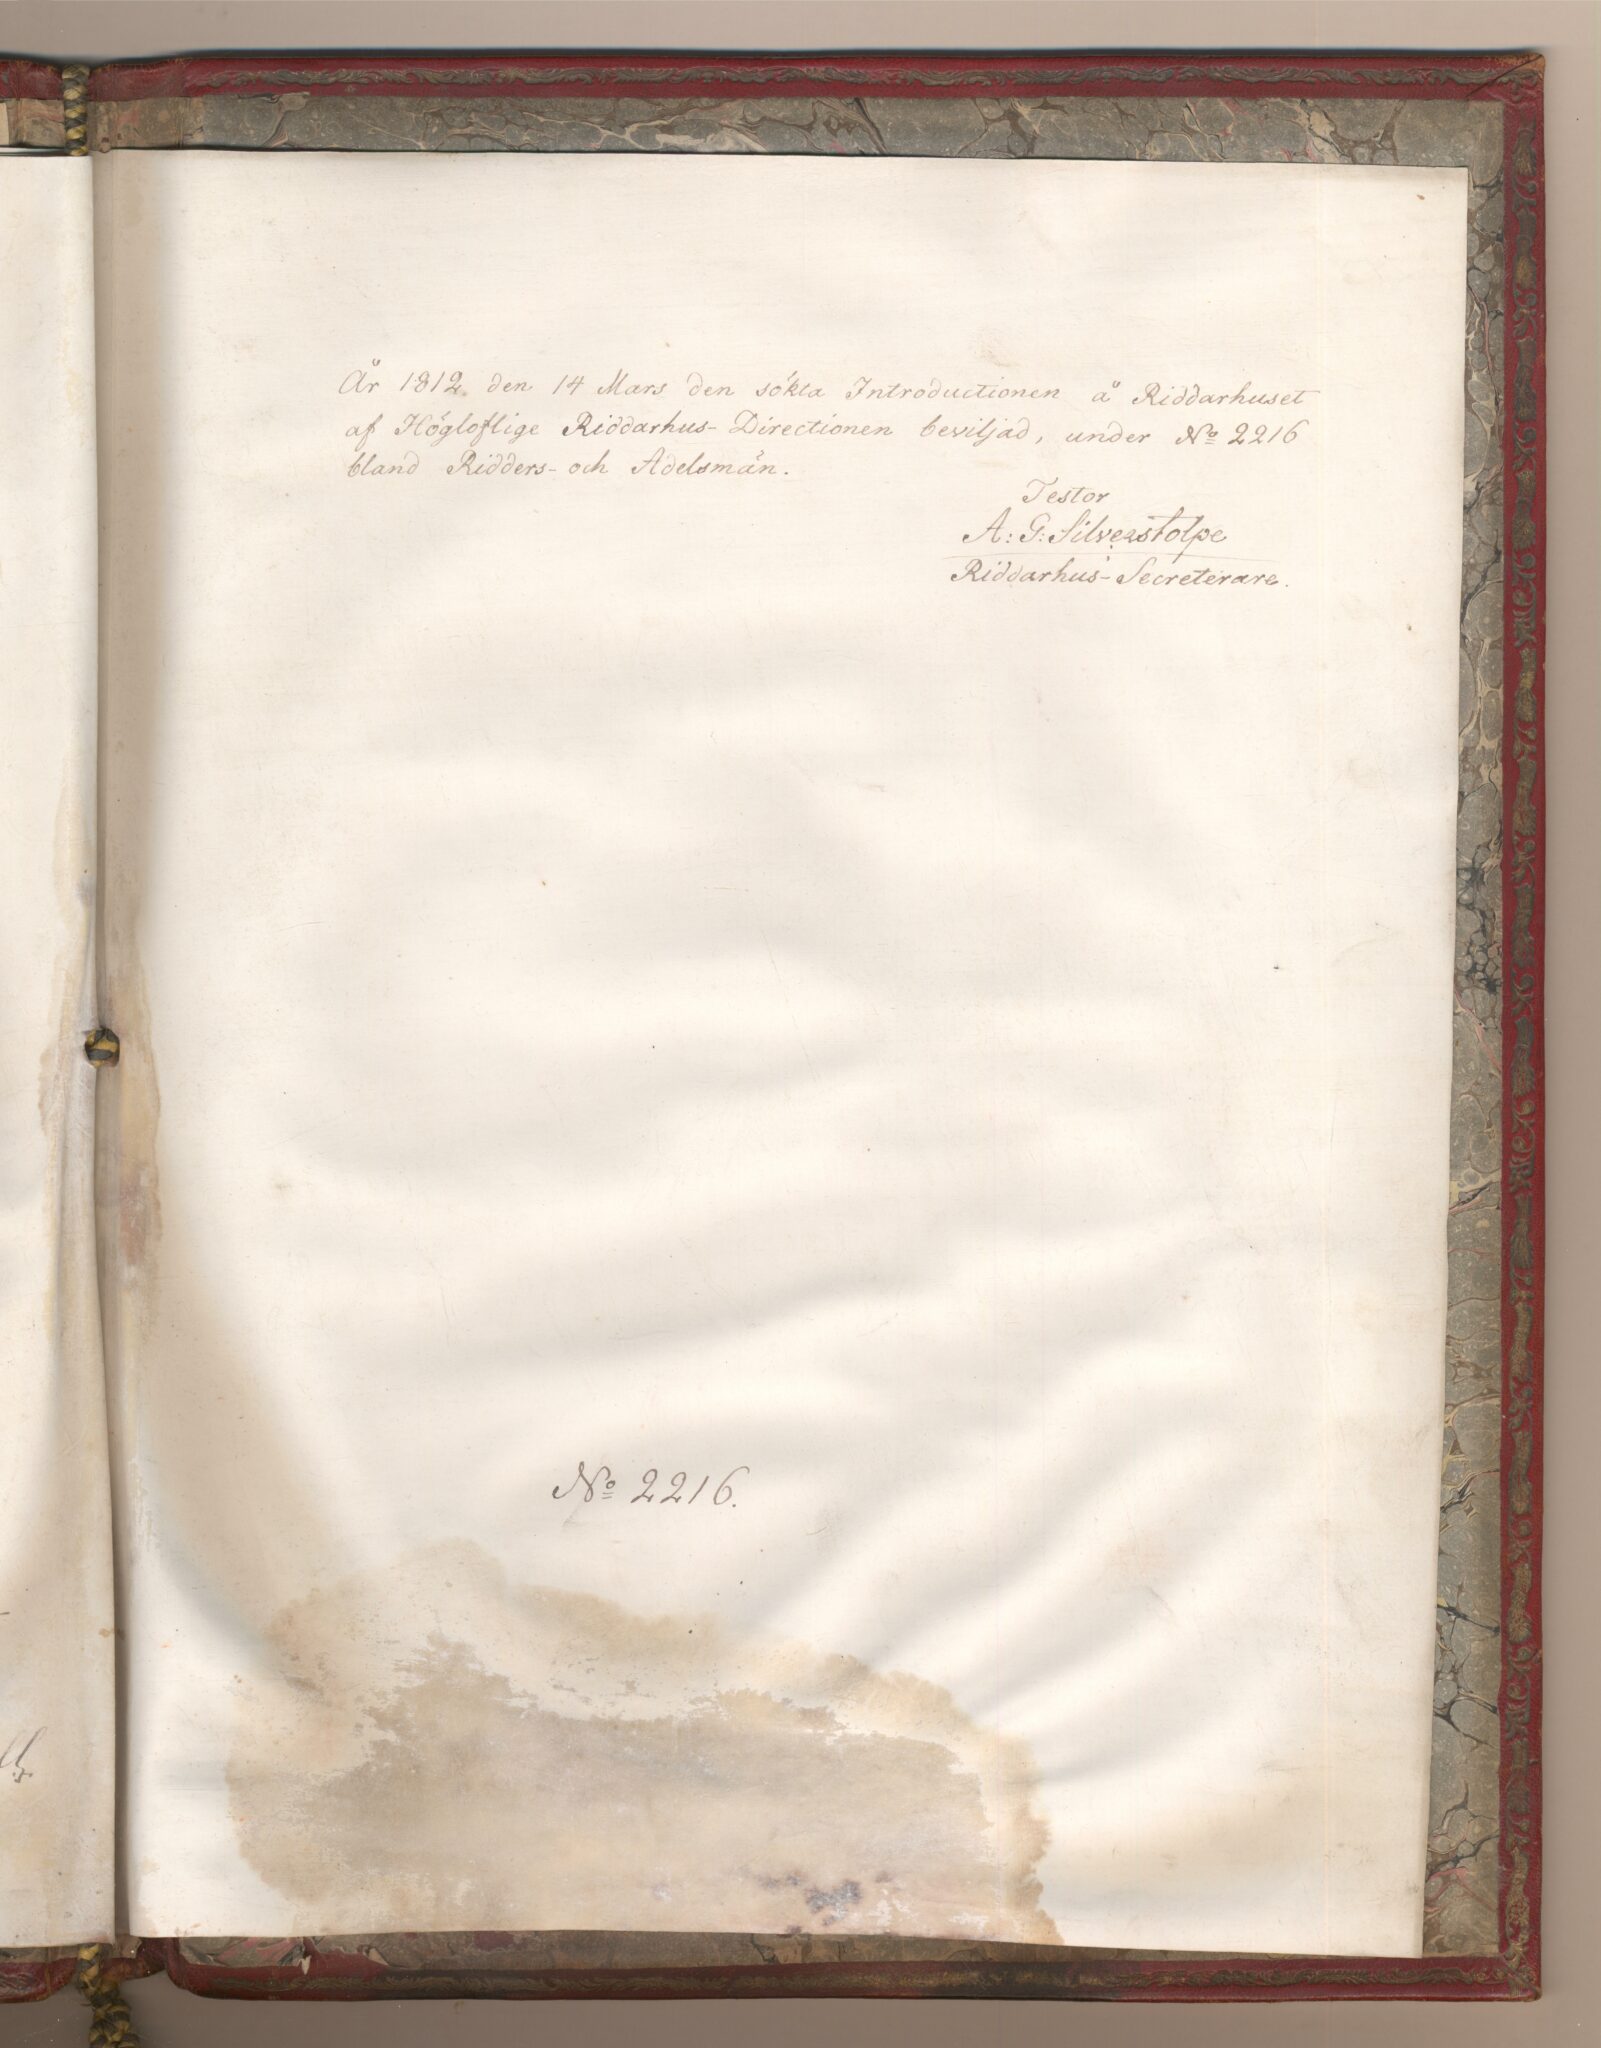 År 1812 den 14 Mars den sökta Introductionen å Riddarhuset
af Högloflige Riddarhus-Directionen beviljad, under No 2216
bland Ridders- och Adelsmän.
Testor
A: G: Silverstolpe
Riddarhus-Secreterare.
No 2216.